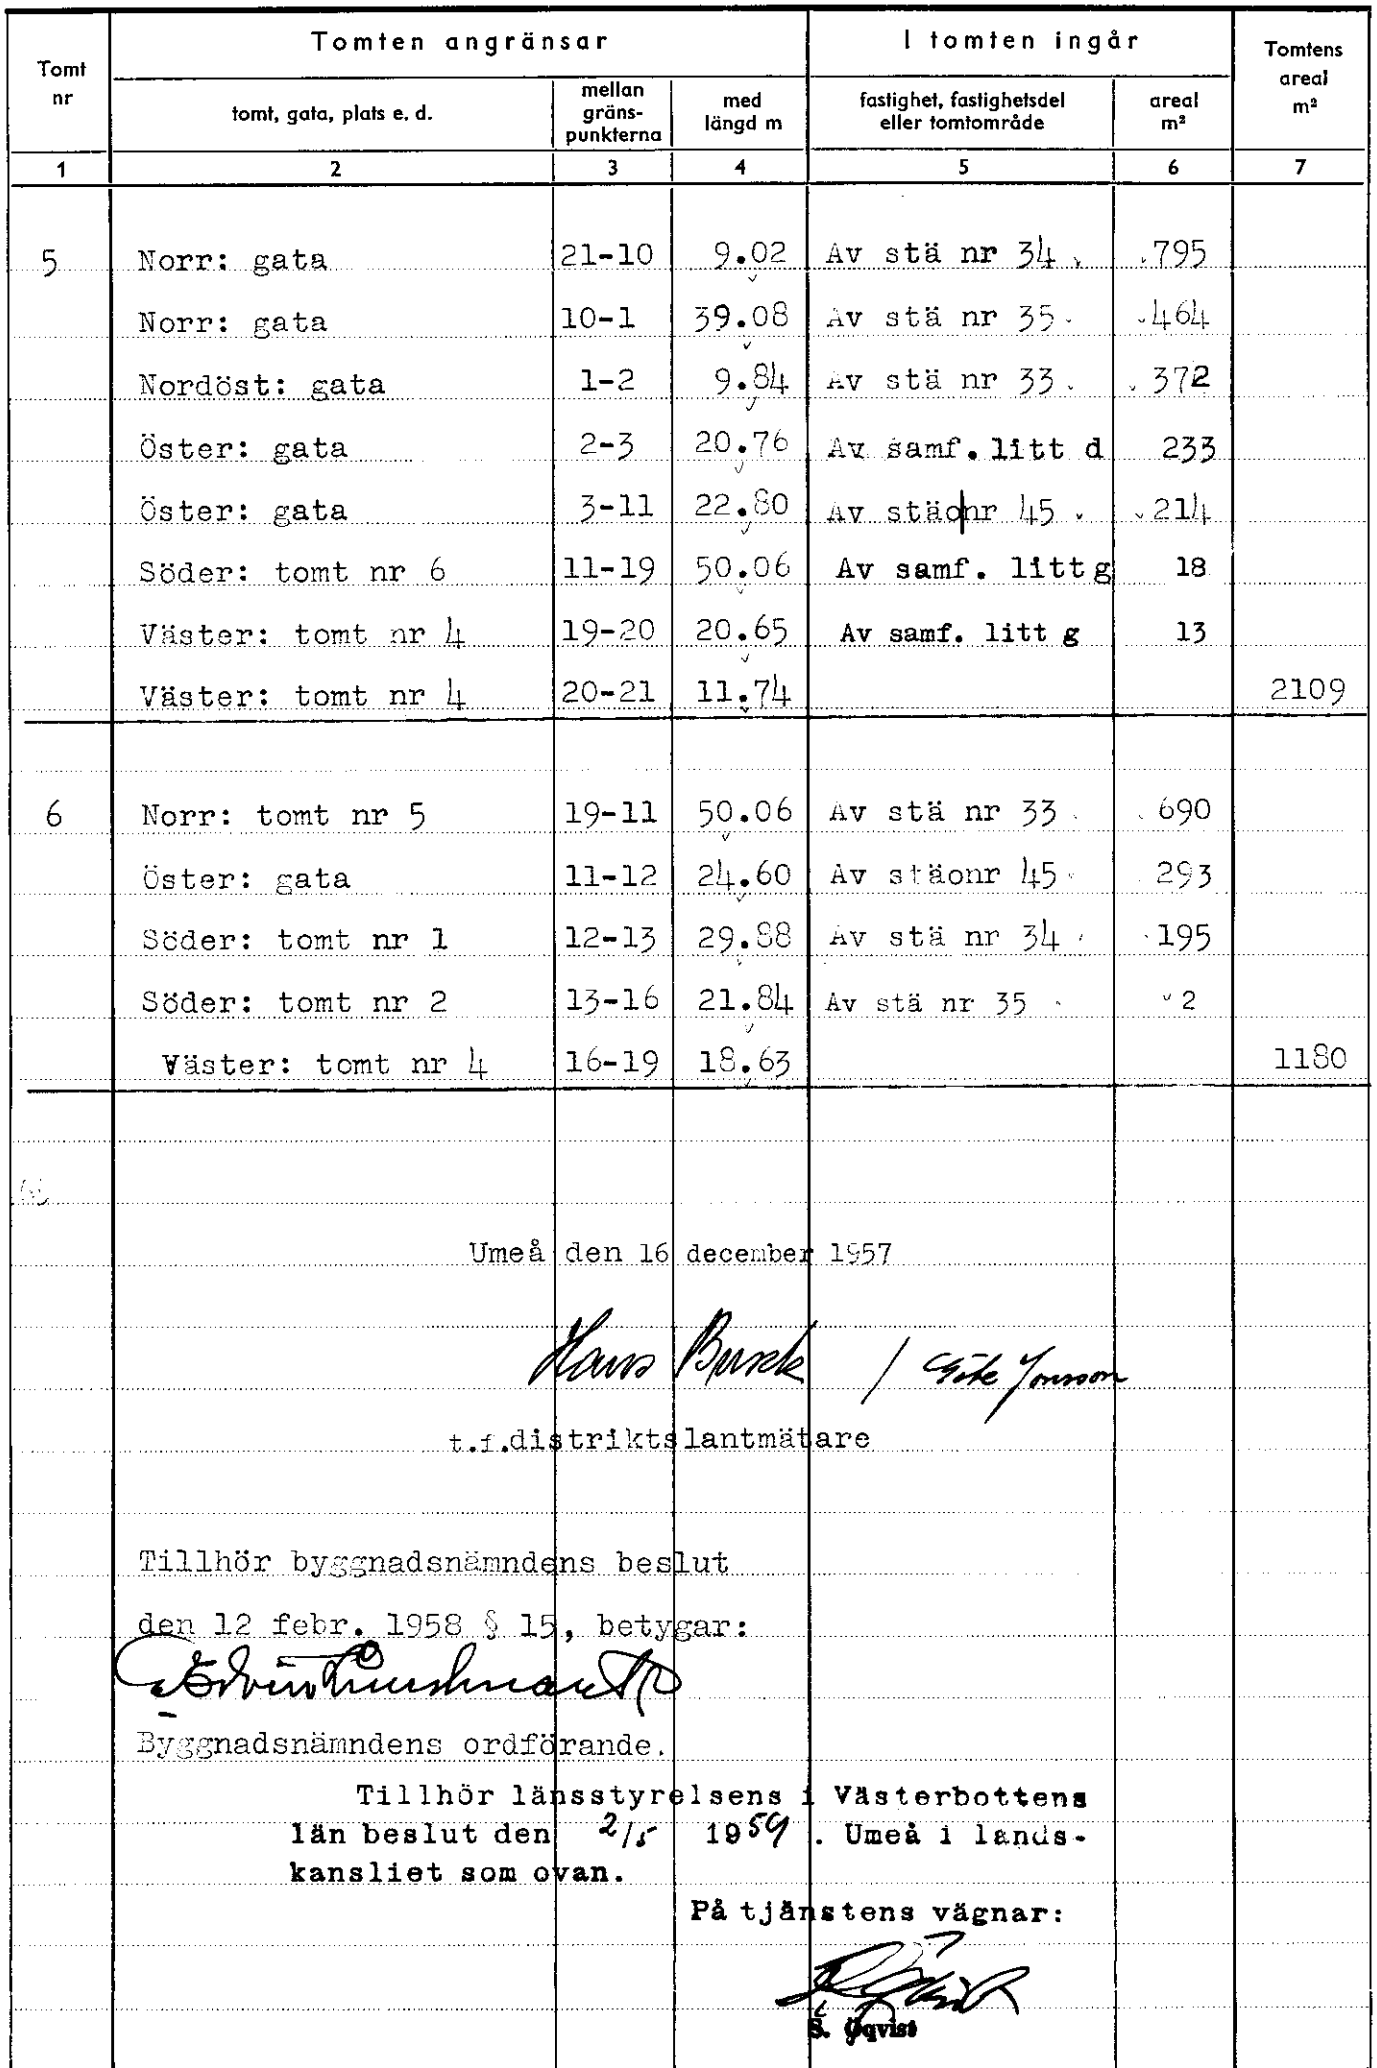 Tomten angränsar I tomten ingår
Tomt nr tomt, gata, plats e. d. mellan gräns-punkterna med längd m fastighet, fastighetsdel eller tomtområde areal m² Tomtens areal m²
1 2 3 4 5 6 7
5 Norr: gata 21-10 9.02 Av stä nr 34 795
Norr: gata 10-1 39.08 Av stä nr 35 464
Nordöst: gata 1-2 9.84 Av stä nr 33 372
Öster: gata 2-3 20.76 Av samf. litt d 233
Öster: gata 3-11 22.80 Av stäonr 45 214
Söder: tomt nr 6 11-19 50.06 Av samf. litt g 18
Väster: tomt nr 4 19-20 20.65 Av samf. litt g 13
Väster: tomt nr 4 20-21 11.74 2109
6 Norr: tomt nr 5 19-11 50.06 Av stä nr 33 690
Öster: gata 11-12 24.60 Av stäonr 45 293
Söder: tomt nr 1 12-13 29.88 Av stä nr 34 195
Söder: tomt nr 2 13-16 21.84 Av stä nr 35 2
Väster: tomt nr 4 16-19 18.63 1180
Umeå den 16 december 1957
Hans Busck / Göte Jonsson
t.f.distriktslantmätare
Tillhör byggnadsnämndens beslut
den 12 febr. 1958 § 15, betygar:
Byggnadsnämndens ordförande.
Tillhör länsstyrelsens i Västerbottens
län beslut den 2/5 1959. Umeå i lands-
kansliet som ovan.
På tjänstens vägnar:
S. Öqvist